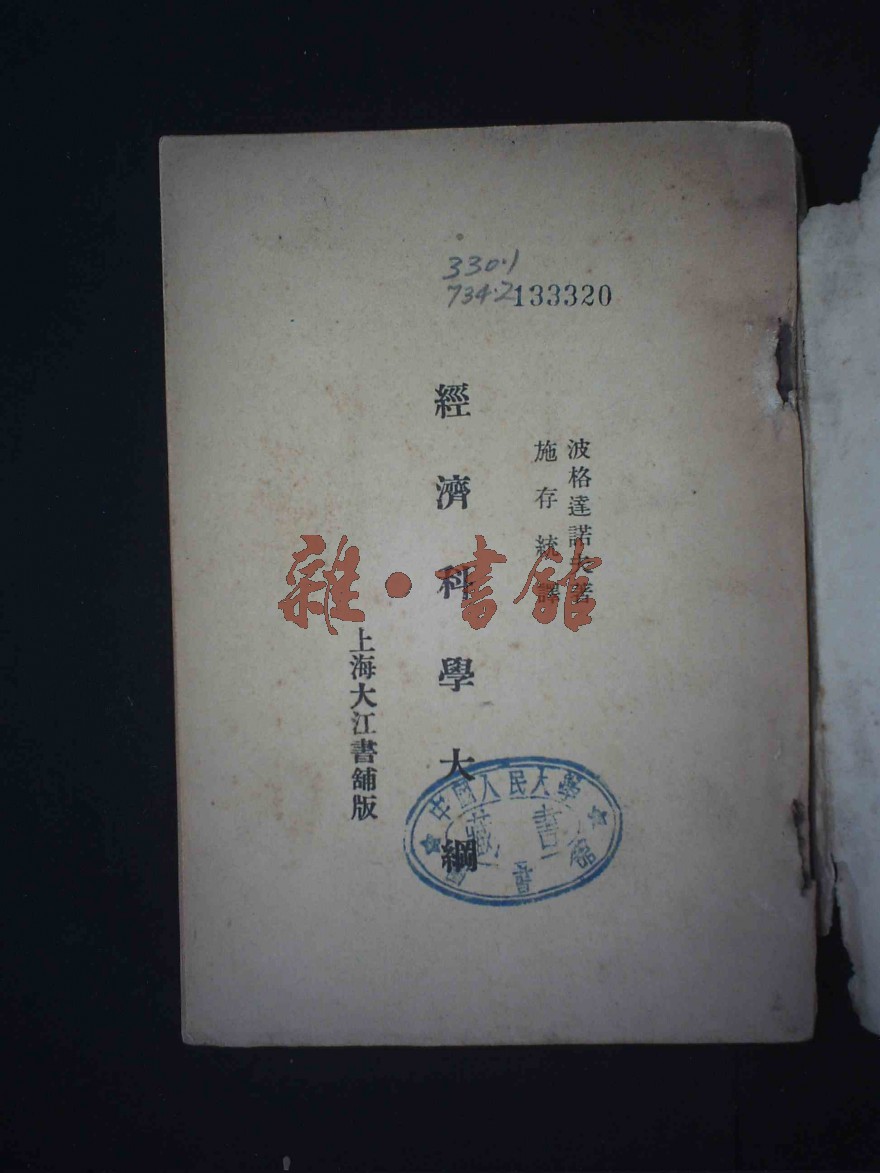 330.1
734.2
133320
波格達諾夫著
施存統譯
經濟科學大綱
上海大江書舖版
雜·書館
中國人民大學
藏書
圖書館